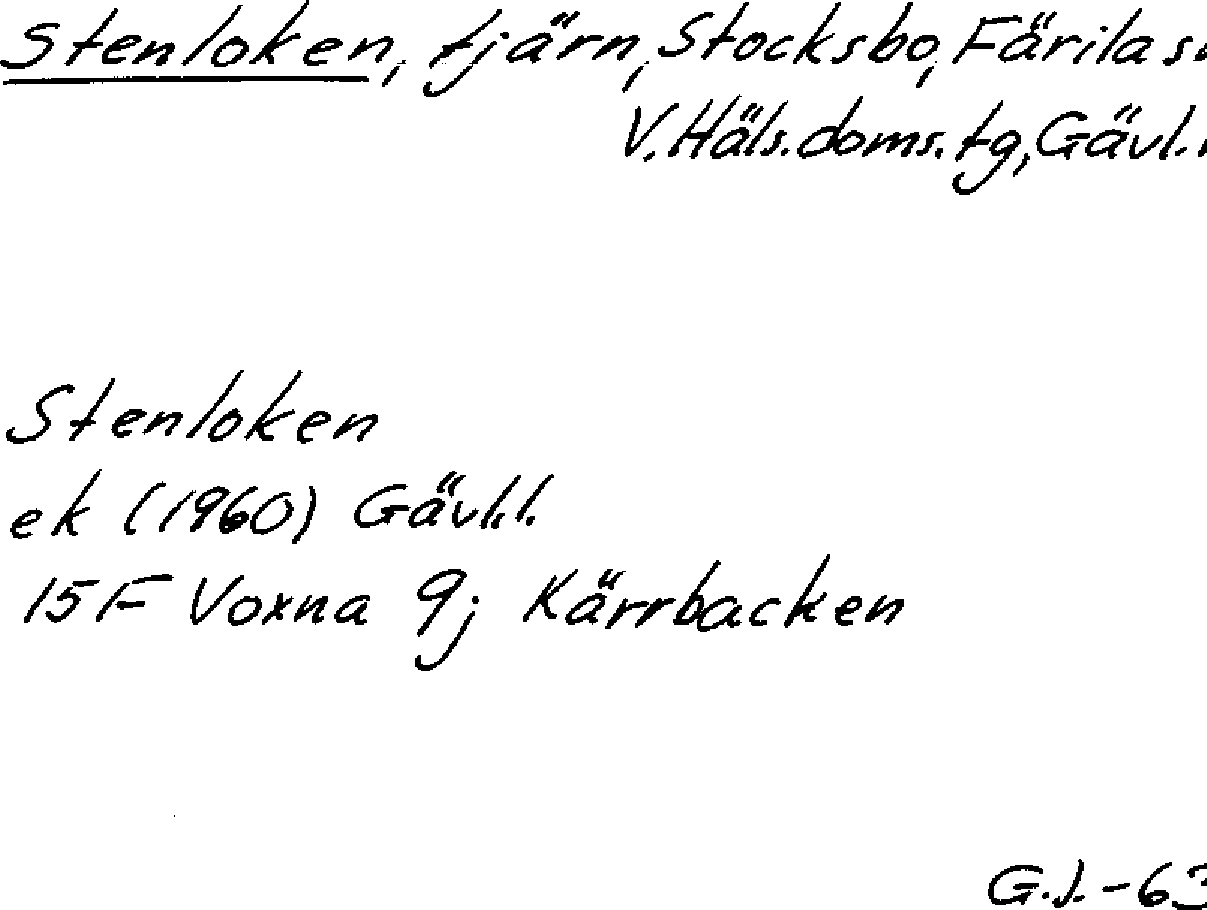 Stenloken, tjärn, Stocksbo, Färila
V. Häls. doms. tg, Gävl.
Stenloken
ek (1960) Gävl.l.
15F Voxna 9j Kärrbacken
G.J. -63